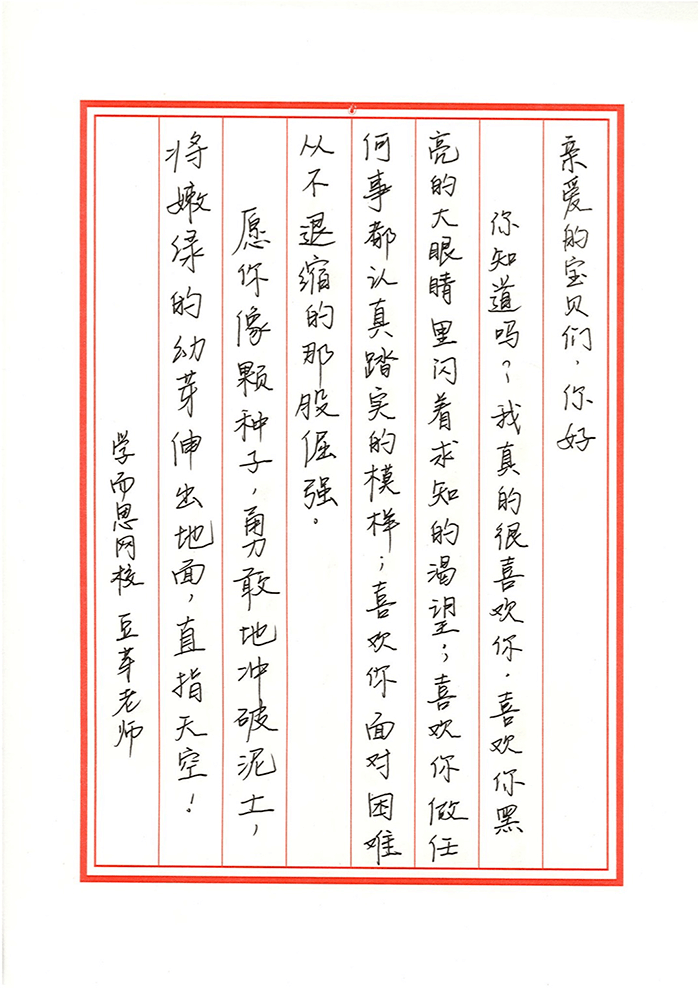 亲爱的宝贝们，你好
你知道吗？我真的很喜欢你．喜欢你黑
亮的大眼睛里闪着求知的渴望；喜欢你做任
何事都认真踏实的模样；喜欢你面对困难
从不退缩的那股倔强．
愿你像颗种子，勇敢地冲破泥土，
将嫩绿的幼芽伸出地面，直指天空！
学而思网校 豆芽老师